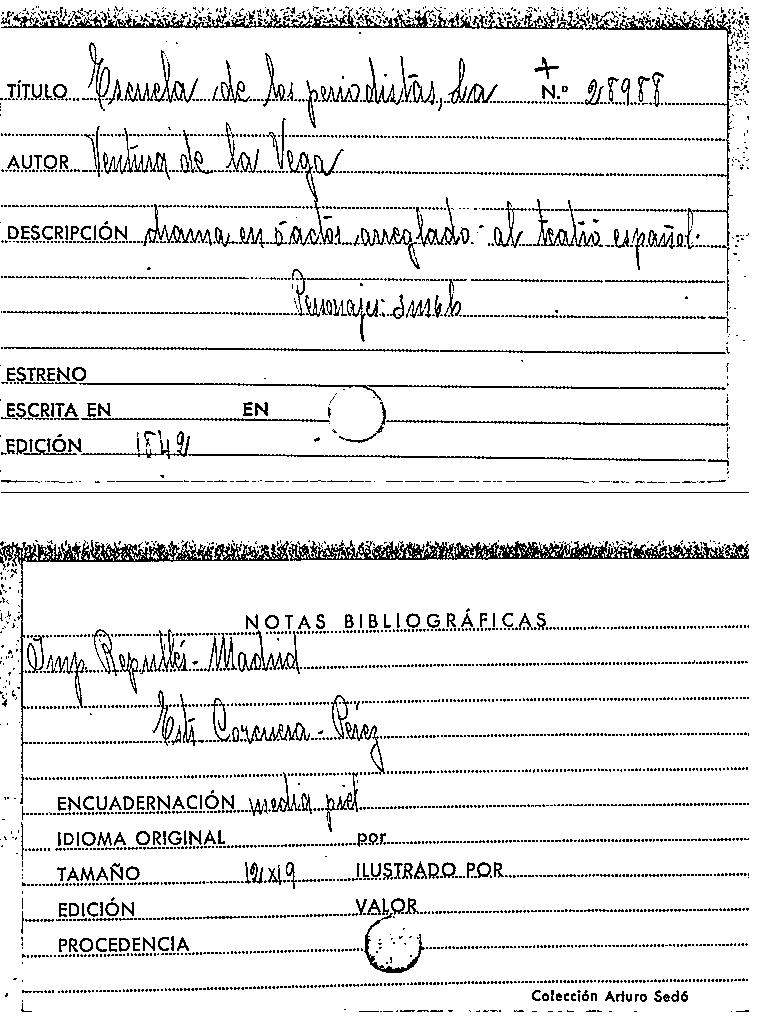 TÍTULO Escuela de los periodistas, La + N.º 28988
AUTOR Ventura de la Vega
DESCRIPCIÓN drama en 5 actos arreglado al teatro español.
Personajes: 3m 6h
ESTRENO
ESCRITA EN EN
EDICIÓN 1842
NOTAS BIBLIOGRÁFICAS
Imp Repullés - Madrid
Est Corcuera - Pérez
ENCUADERNACIÓN media piel
IDIOMA ORIGINAL por
TAMAÑO 12x19 ILUSTRADO POR
EDICIÓN VALOR
PROCEDENCIA
Colección Arturo Sedó